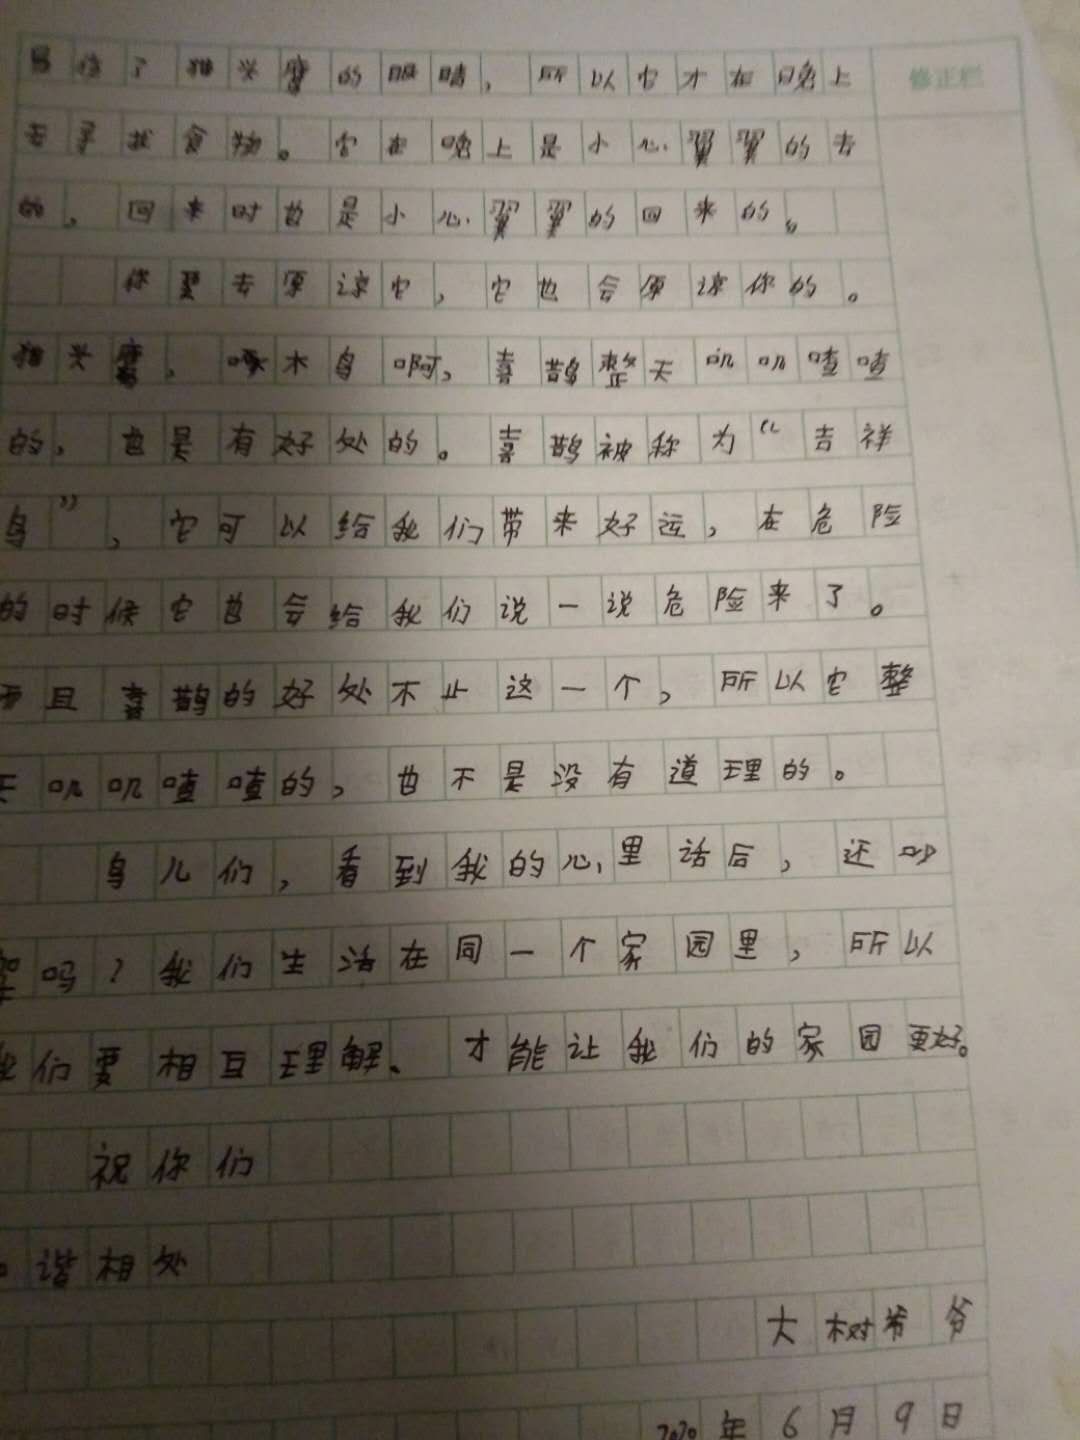 易惊了猫头鹰的眼睛，所以它才在晚上 修正栏
去寻找食物。它在晚上是小心翼翼的去
的，回来时也是小心翼翼的回来的。
你要去原谅它，它也会原谅你的。
猫头鹰，啄木鸟啊，喜鹊整天叽叽喳喳
的，也是有好处的。喜鹊被称为“吉祥
鸟”，它可以给我们带来好运，在危险
的时候它也会给我们说一说危险来了。
而且喜鹊的好处不止这一个，所以它整
天叽叽喳喳的，也不是没有道理的。
鸟儿们，看到我的心里话后，还吵
架吗？我们生活在同一个家园里，所以
我们要相互理解、才能让我们的家园更好。
祝你们
谐相处
大树爷爷
2020年6月9日